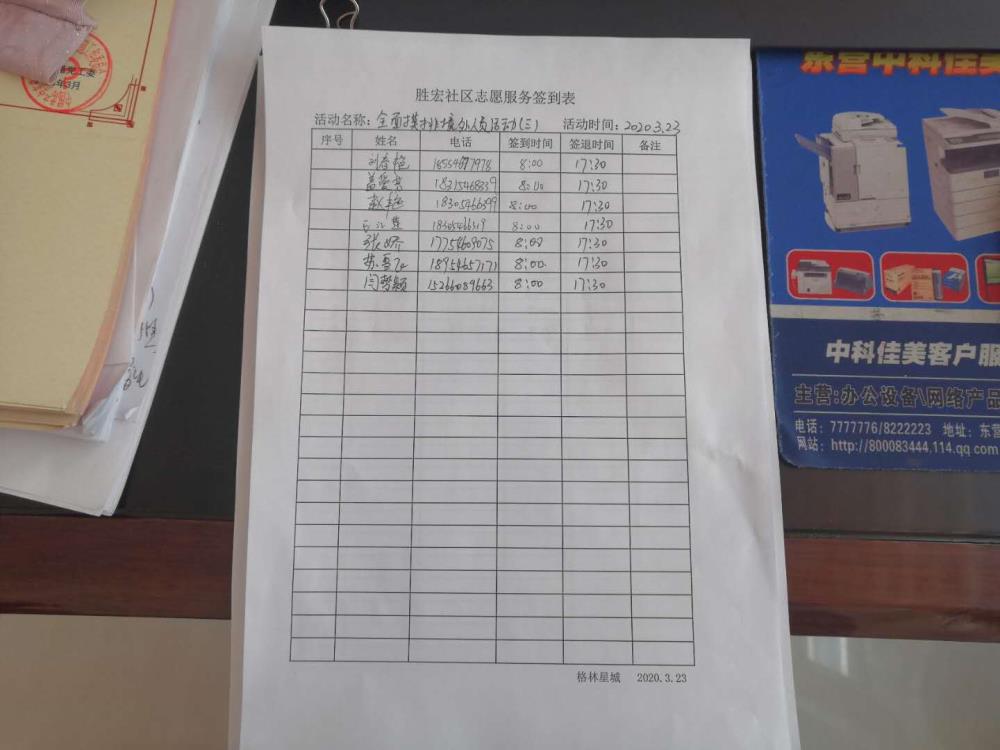 胜宏社区志愿服务签到表
活动名称：全面摸排境外人员活动(三) 活动时间：2020.3.23
序号 姓名 电话 签到时间 签退时间 备注
刘春艳 8:00 17:30
盖爱芳 18315468339 8:00 17:30
赵艳 18305466399 8:00 17:30
8:00 17:30
张娇 17754609075 8:00 17:30
18954657171 8:00 17:30
闫梦颖 15266089663 8:00 17:30
格林星城 2020.3.23
党工委
年3月
东营中科佳美
中科佳美客户服
主营:办公设备\网络产品
电话：7777776/8222223 地址：东营
网站：http://800083444.114.qq.com